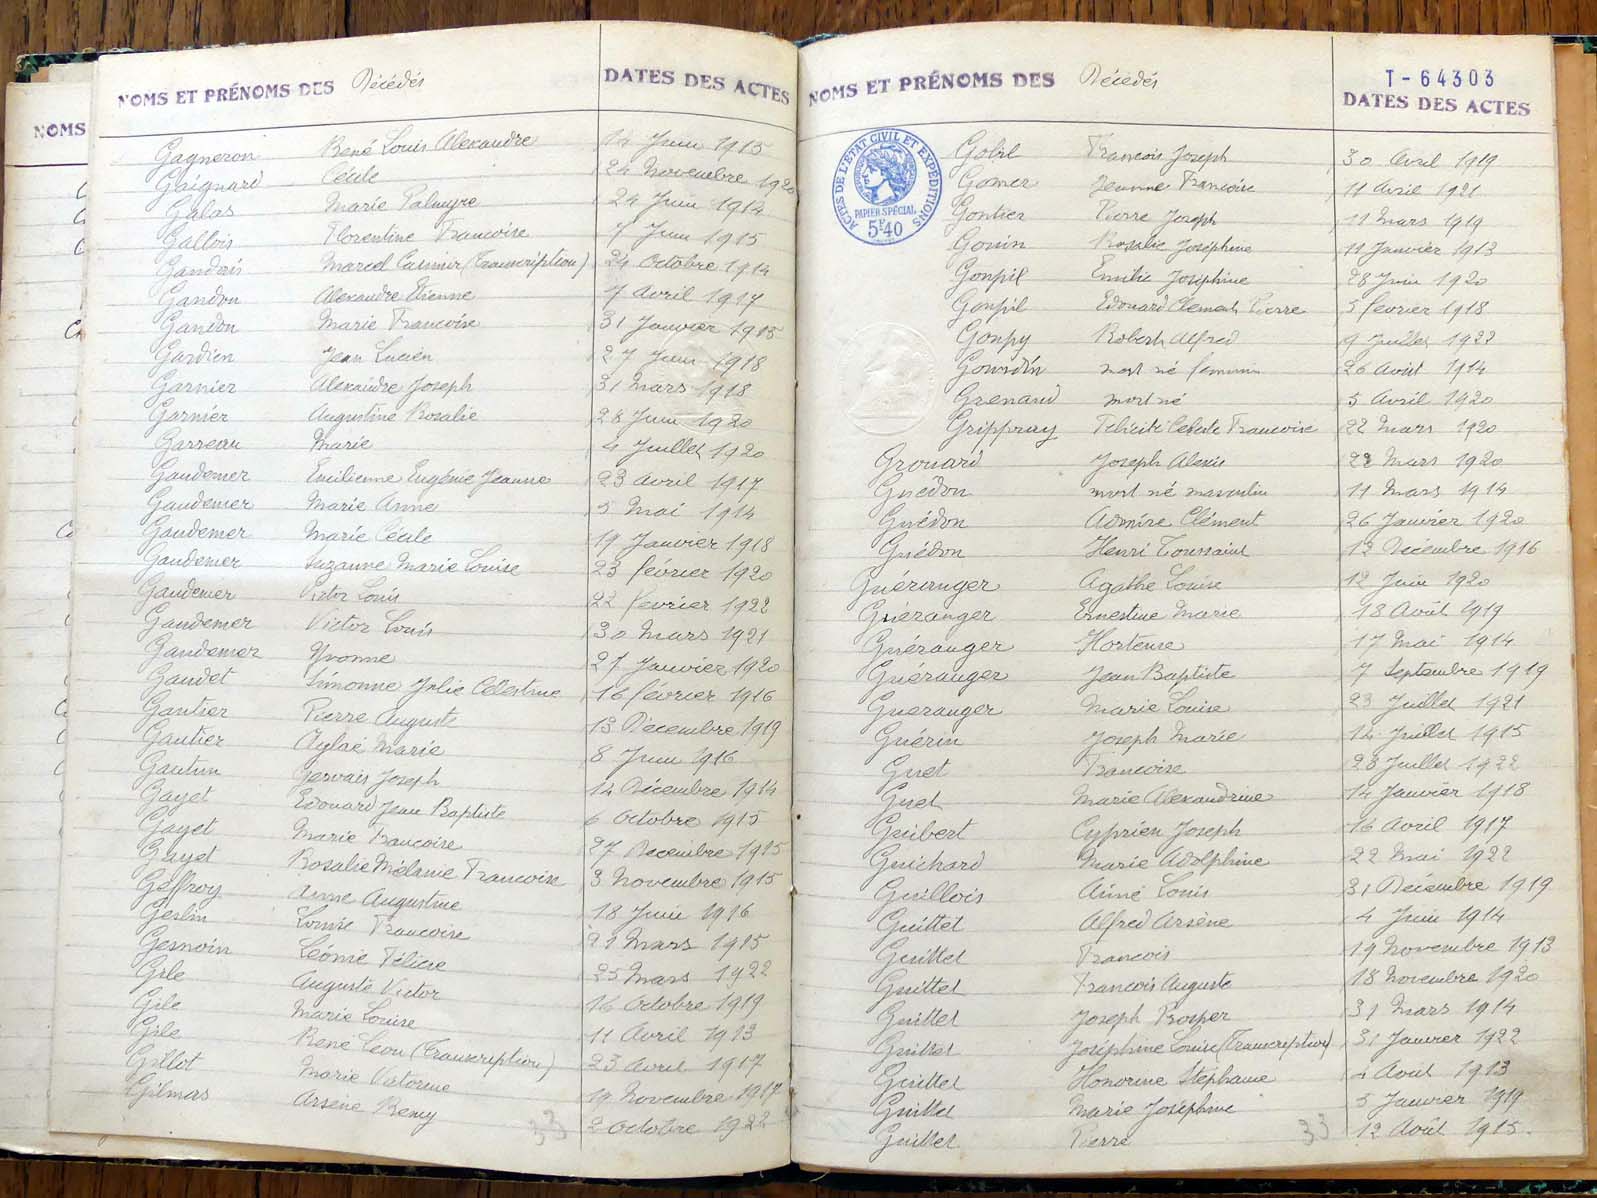 NOMS
NOMS ET PRÉNOMS DES Décédés DATES DES ACTES
Gagneron René Louis Alexandre 14 Juin 1915
Gaignard Cécile 24 Novembre 1920
Galas Marie Palmyre 24 Juin 1914
Gallois Florentine Francoise 7 Juin 1915
Gandais Marcel Casimir (Transcription) 24 Octobre 1914
Gandon Alexandre Etienne 7 Avril 1917
Gandon Marie Francoise 31 Janvier 1915
Gardien Jean Lucien 27 Juin 1918
Garnier Alexandre Joseph 31 Mars 1918
Garnier Augustine Rosalie 28 Juin 1920
Garreau Marie 4 Juillet 1920
Gaudemer Emilienne Eugénie Jeanne 23 Avril 1917
Gaudemer Marie Anne 5 Mai 1914
Gaudemer Marie Cécile 19 Janvier 1918
Gaudemer Suzanne Marie Louise 23 février 1920
Gaudemer Victor Louis 22 fevrier 1922
Gaudemer Victor Louis 30 Mars 1921
Gaudemer Yvonne 27 Janvier 1920
Gaudet Simonne Julie Célestine 16 février 1916
Gautier Pierre Auguste 13 Décembre 1919
Gautier Aglaé Marie 8 Juin 1916
Gautun Gervais Joseph 14 Décembre 1914
Gayet Edouard Jean Baptiste 6 Octobre 1915
Gayet Marie Francoise 27 Decembre 1915
Gayet Rosalie Mélanie Francoise 3 Novembre 1915
Geffroy Anne Augustine 18 Juin 1916
Geslin Louise Francoise 21 Mars 1915
Gesnoin Léonie Félicie 25 Mars 1922
Gile Auguste Victor 16 Octobre 1919
Gile Marie Louise 11 Avril 1913
Gile René Léon (Transcription) 23 Avril 1917
Gillot Marie Victorine 19 Novembre 1917
Gilmas Arsène Remy 2 Octobre 1922
33
T-64303
NOMS ET PRÉNOMS DES Décédés DATES DES ACTES
ACTES DE L'ETAT CIVIL ET EXPEDITIONS
PAPIER SPÉCIAL
5F40
Gobil Francois Joseph 30 Avril 1919
Gomer Jeanne Francoise 11 Avril 1921
Gontier Pierre Joseph 11 Mars 1919
Gouin Rosalie Joséphine 11 Janvier 1913
Goupil Emilie Joséphine 28 Juin 1920
Goupil Edouard Clement Pierre 5 fevrier 1918
Goupy Robert Alfred 9 Juillet 1922
Gourdin mort né feminin 26 Août 1914
Grenard mort né 5 Avril 1920
Grippray Félicité Céleste Francoise 22 Mars 1920
Grouard Joseph Alexis 22 Mars 1920
Guédon mort né masculin 11 Mars 1914
Guédon Admire Clément 26 Janvier 1920
Guédon Henri Toussaint 13 Décembre 1916
Guéranger Agathe Louise 12 Juin 1920
Guéranger Ernestine Marie 18 Août 1919
Guéranger Hortense 17 Mai 1914
Guéranger Jean Baptiste 7 Septembre 1919
Gueranger Marie Louise 23 Juillet 1921
Guérin Joseph Marie 12 Juillet 1915
Guet Francoise 28 Juillet 1922
Guet Marie Alexandrine 14 Janvier 1918
Guibert Cyprien Joseph 16 Avril 1917
Guichard Marie Adolphine 22 Mai 1922
Guillois Aimé Louis 31 Décembre 1919
Guittet Alfred Arsène 4 Juin 1914
Guittet Francois 19 Novembre 1913
Guittet Francois Auguste 18 Novembre 1920
Guittet Joseph Prosper 31 Mars 1914
Guittet Joséphine Louise (Transcription) 31 Janvier 1922
Guittet Honorine Stéphanie 2 Aout 1913
Guittet Marie Joséphine 5 Janvier 1919
Guittet Pierre 12 Août 1915
33